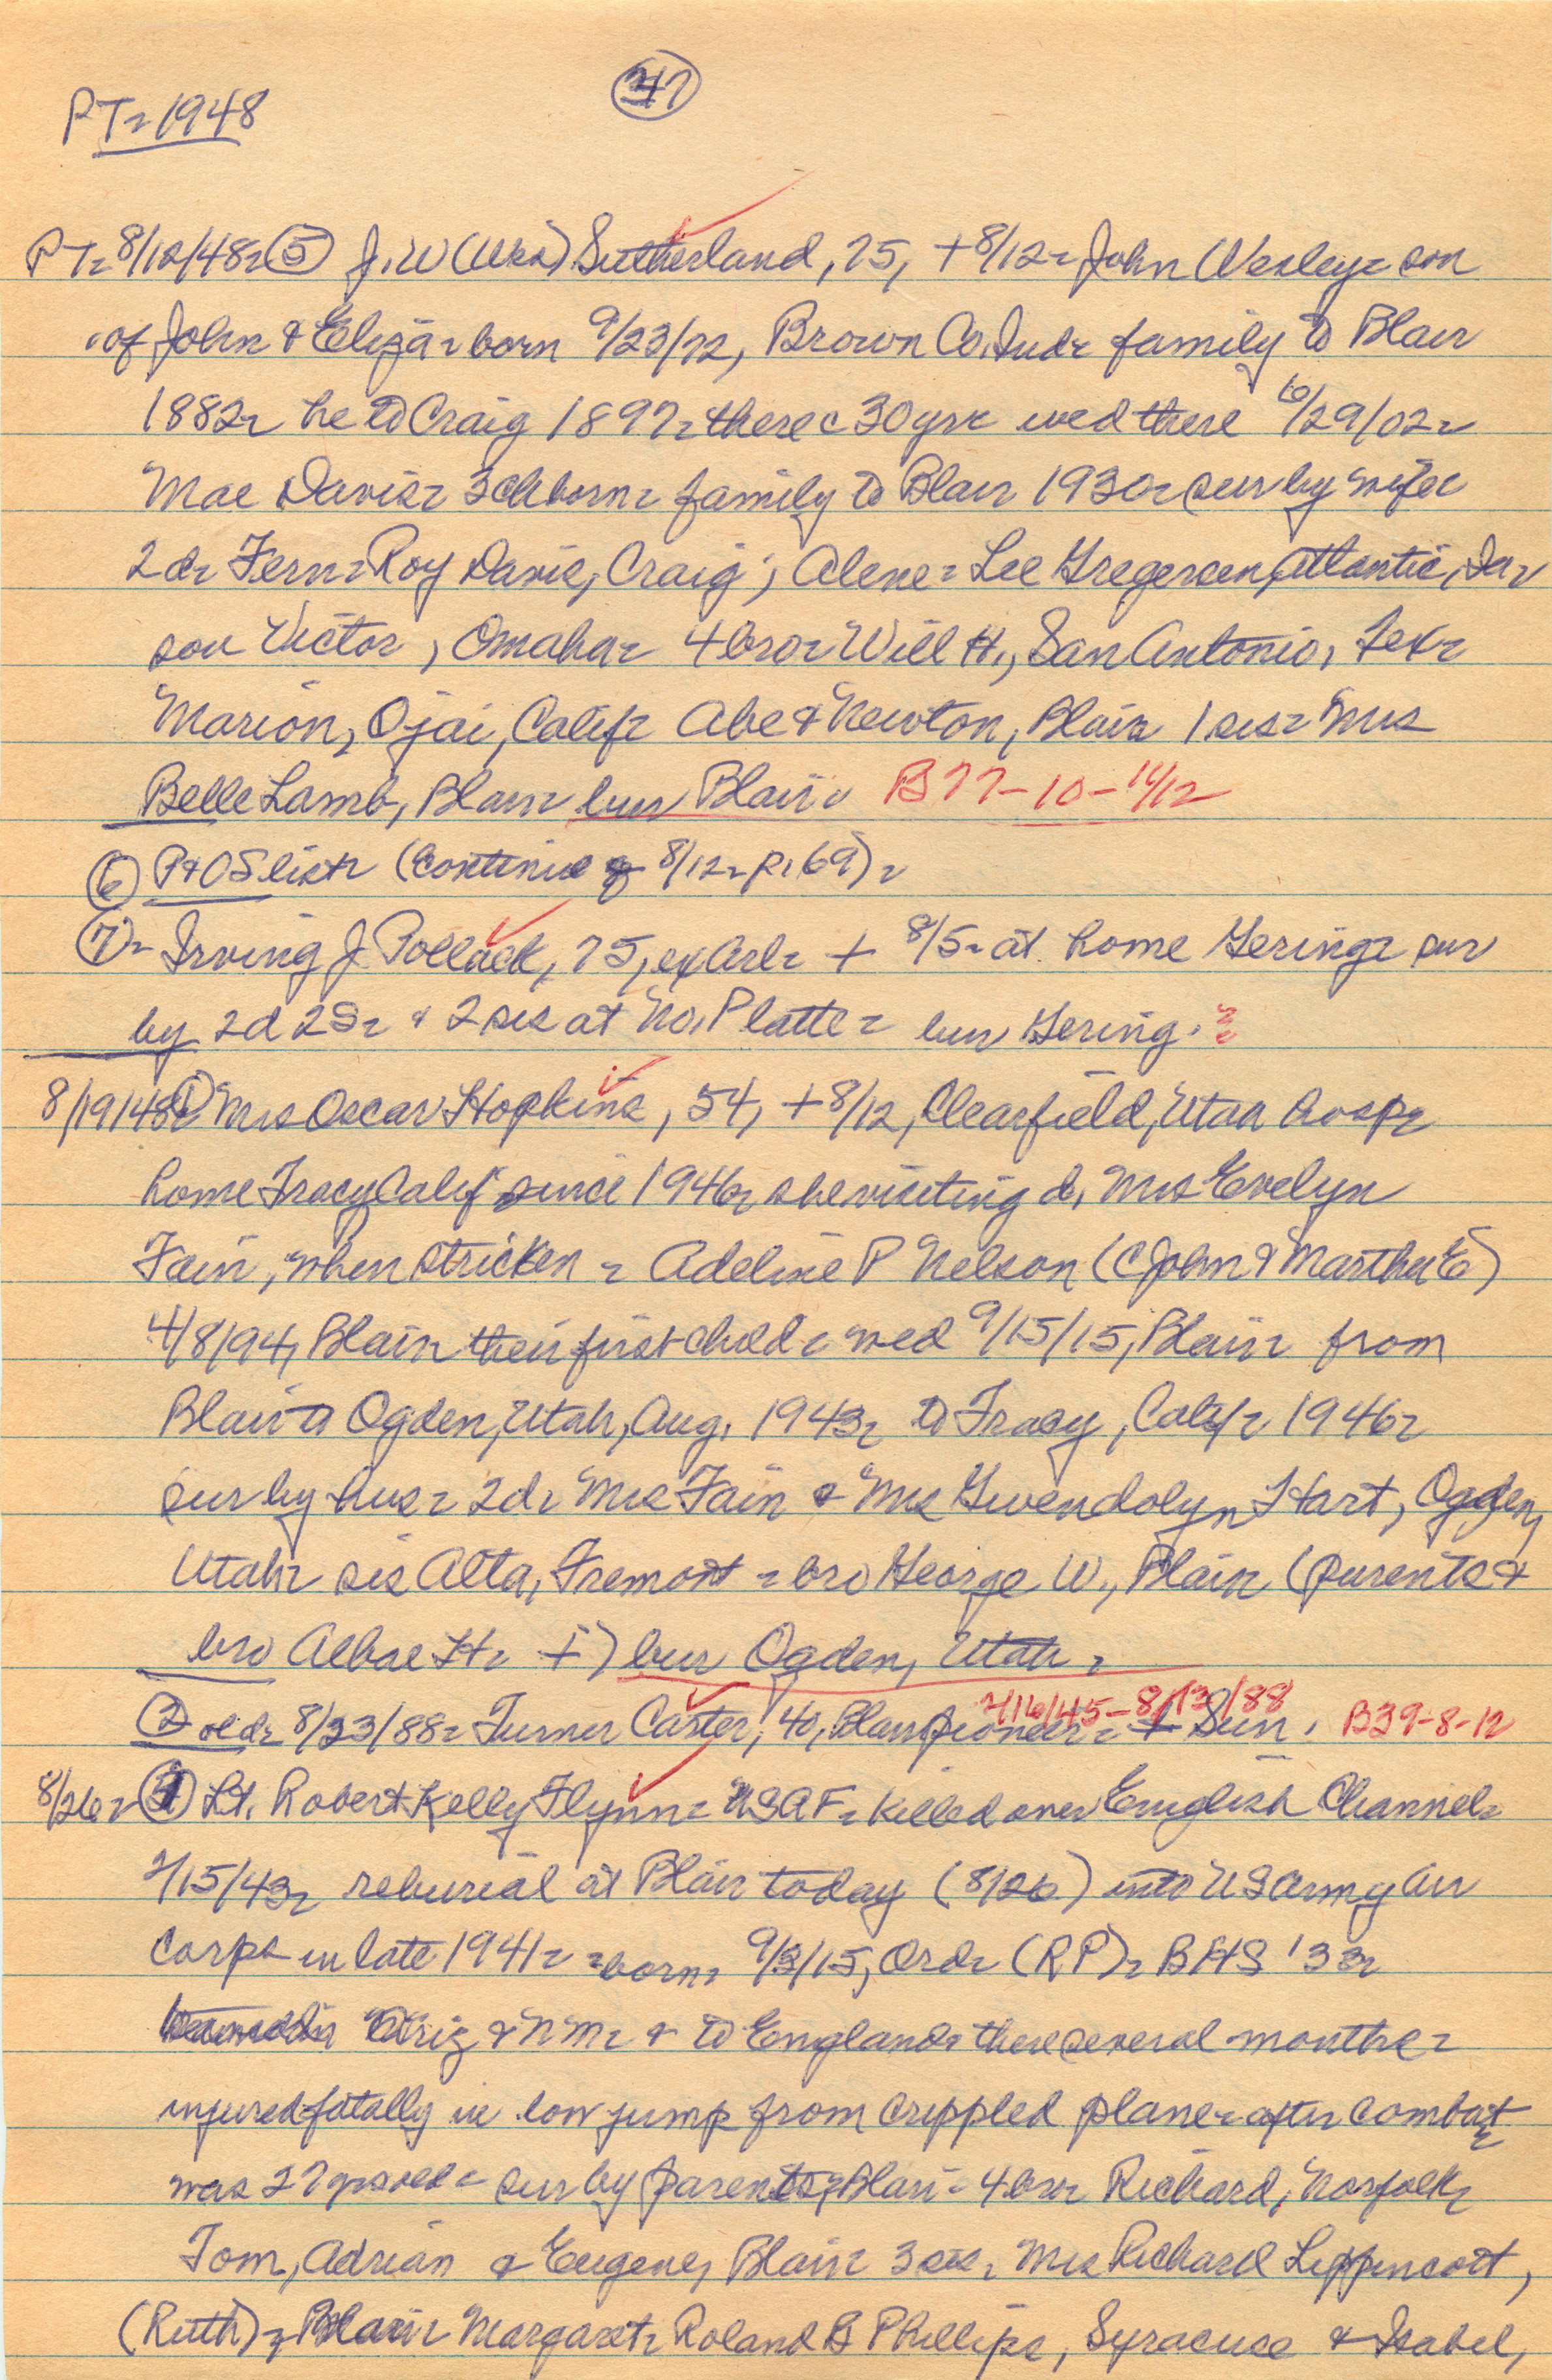 47
PT- 1948
PT- 8/12/48- (5) J.W (Wes) Sutherland, 75, + 8/12- John Wesley- son
of John & Eliza- born 9/23/72, Brown Co. Ind- family to Blair
1882- he to Craig 1897- there c 30 yrs- wed there 10/29/02-
Mae Davis- 3 ch born- family to Blair 1930- sur by wife-
2 d- Fern- Roy Davis, Craig; Alene- Lee Gregersen, Atlantic, Ia-
son Victor, Omaha- 4 bro- Will H., San Antonio, Tex-
Marion, Ojai, Calif- Abe & Newton, Blair- 1 sis- Mrs
Belle Lamb, Blair- bur Blair- B77-10-11/12
(6) P&OS list- (Continue 8/12- p. 69)-
(7)- Irving J. Pollack, 75, ex Arl- + 8/5- at home Gering- sur
by 2d 2S- & 2 sis at No. Platte- bur Gering.
8/19/48 (1) Mrs Oscar Hopkins, 54, + 8/12, Clearfield, Utah hosp-
home Tracy Calif since 1946- she visiting d, Mrs Evelyn
Fain, when stricken- Adeline P Nelson (C John & Martha E)
4/8/94, Blair- their first child- wed 9/15/15, Blair- from
Blair to Ogden, Utah, Aug. 1943- to Tracy, Calif- 1946-
sur by hus- 2d- Mrs Fain & Mrs Gwendolyn Hart, Ogden,
Utah- sis Alta, Fremont- bro George W., Blair (parents &
bro Albae H- +) bur Ogden, Utah-
(2) old- 8/23/88- Turner Carter, 40, Blair pioneer- + Sun. 2/16/45-8/13/88 B39-8-12
8/26- (1) Lt. Robert Kelly Flynn- USAF- killed over English Channel-
2/15/43- reburial at Blair today (8/26) into US Army Air
Corps in late 1941- born- 9/3/15, Ord- (RP)- BHS '33-
Ariz & NM- & to England- there several months-
injured fatally in low jump from crippled plane- after combat-
was 27 yrs old- sur by parents, Blair- 4 bro- Richard, Norfolk-
Tom, Adrian & Eugene, Blair- 3 sis- Mrs Richard Lippincott,
(Ruth)- Blair- Margaret- Roland B Phillips, Syracuse & Isabel,